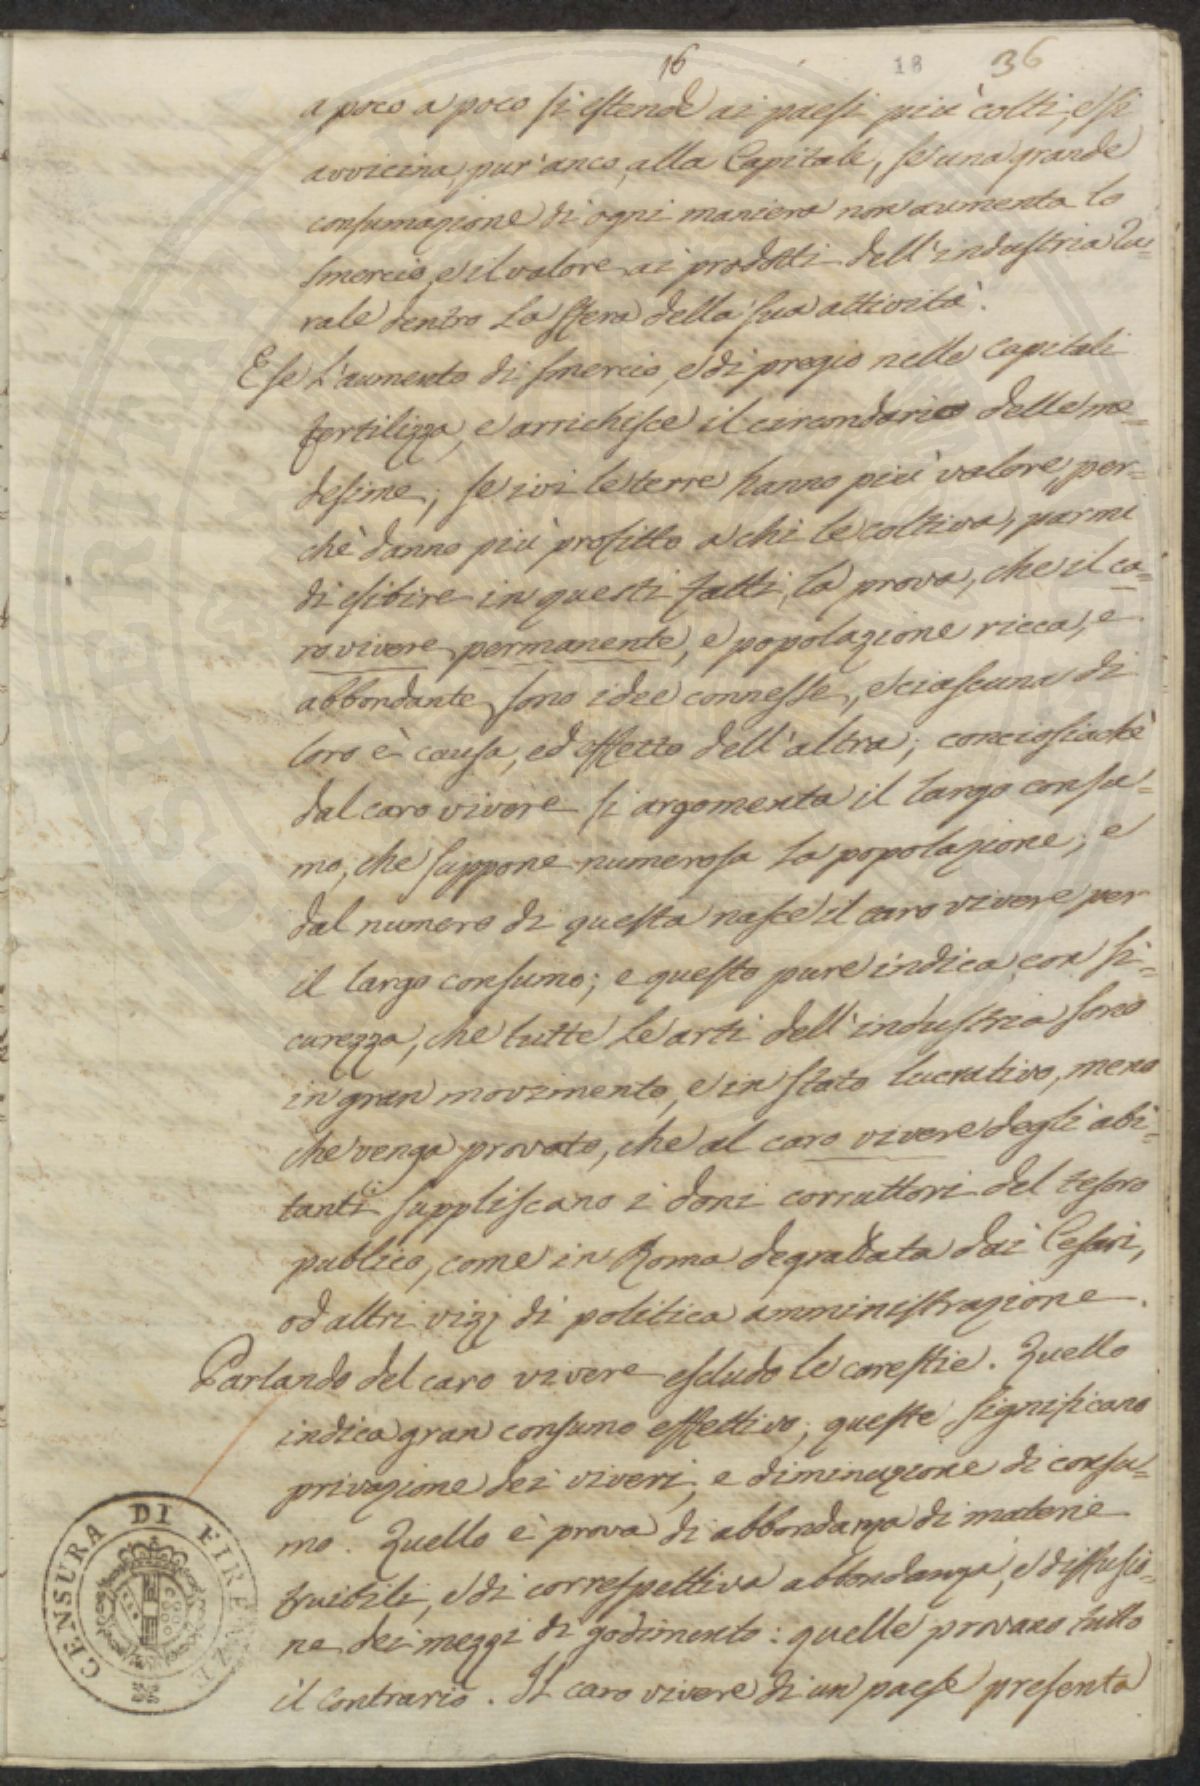 16 18 36
a poco a poco si estende ai paesi più colti, e si
avvicina, pur'anco, alla Capitale, se una grande
consumazione di ogni maniera non aumenta lo
smercio, e il valore ai prodotti dell'industria ru=
rale dentro la sfera della sua attività.
E se l'aumento di smercio, e di pregio nelle Capitali
fertilizza, e arrichisce il circondario delle me=
desime, se ivi le terre hanno più valore, per=
chè danno più profitto a chi le coltiva, parmi
di esibire in questi fatti, la prova, che il ca=
ro vivere permanente, e popolazione ricca, e
abbondante sono idee connesse, e ciascuna di
loro è causa, ed effetto dell'altra; conciosiachè
dal caro vivere si argomenta il largo consu=
mo, che suppone numerosa la popolazione; e
dal numero di questa nasce il caro vivere per
il largo consumo; e questo pure indica con si=
curezza, che tutte le arti dell'industria sono
in gran movimento, e in stato lucrativo, meno
che venga provato, che al caro vivere degli abi=
tanti suppliscano i doni corruttori del tesoro
publico, come in Roma degradata dai Cesari,
od altri vizj di politica amministrazione.
Parlando del caro vivere escludo le carestie. Quello
indica gran consumo effettivo; queste significano
privazione dei viveri, e diminuzione di consu=
mo. Quello è prova di abbondanza di materie
fruibili, e di correspettiva abbondanza, e diffusio=
ne dei mezzi di godimento: quelle provano tutto
il contrario. Il caro vivere di un paese presenta
CENSURA DI FIRENZE
PROSPERITATI PUBLICAE